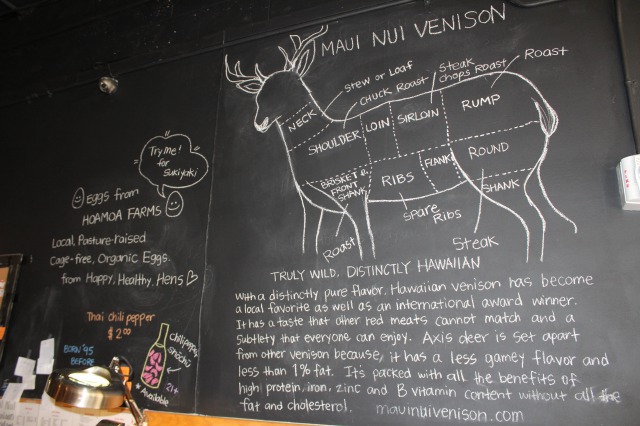 MAUI NUI VENISON
Stew or Loaf
Chuck Roast
Steak
Chops Roast
Roast
NECK
SHOULDER
LOIN
SIRLOIN
RUMP
BRISKET &
FRONT
SHANK
RIBS
FLANK
ROUND
SHANK
Roast
Spare
Ribs
Steak
TRULY WILD, DISTINCTLY HAWAIIAN
With a distinctly pure flavor. Hawaiian venison has become
a local favorite as well as an international award winner.
It has a taste that other red meats cannot match and a
subtlety that everyone can enjoy. Axis deer is set apart
from other venison because, it has a less gamey flavor and
less than 1% fat. It's packed with all the benefits of
high protein, iron, zinc and B vitamin content without all the
fat and cholesterol. mauinuivenison.com
Try me!
for
Sukiyaki
Eggs from
HOAMOA FARMS
Local, Pasture-raised
Cage-free, Organic Eggs.
from Happy, Healthy, Hens
Thai chili pepper
$2.00
BORN '95
BEFORE
Chili pepper
Shochu
21+
Available